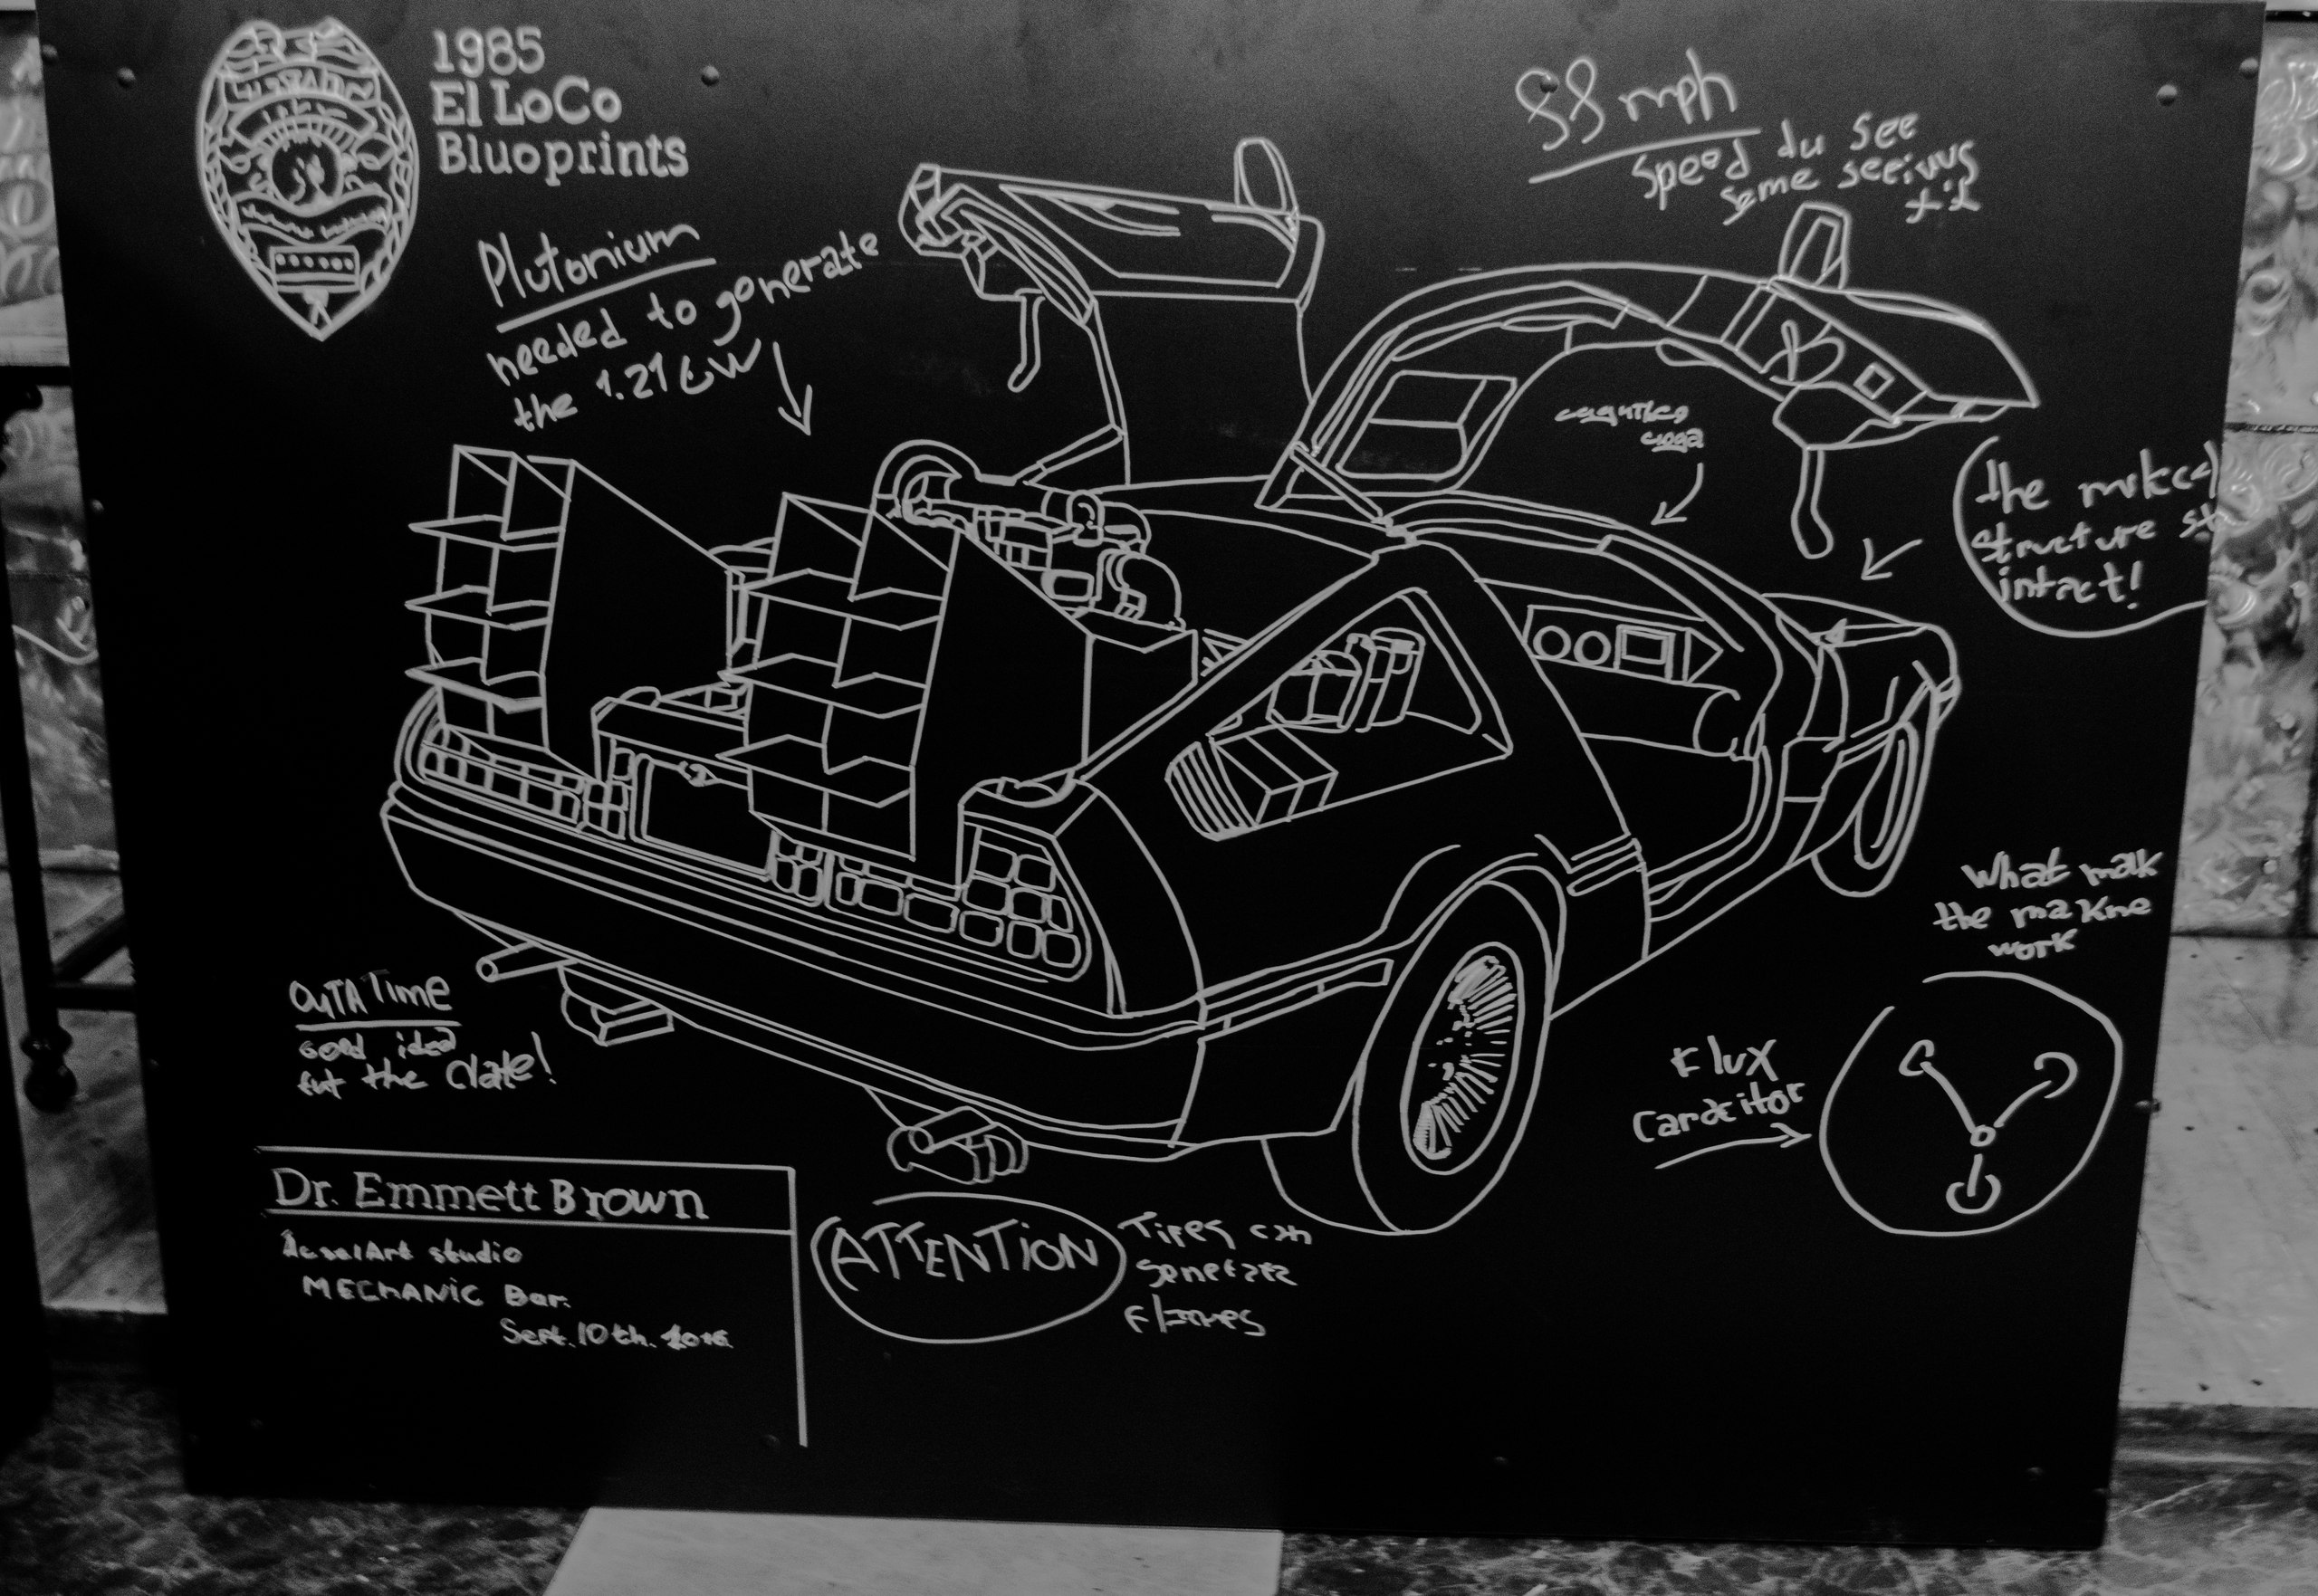 1985
El LoCo
Bluoprints
88 mph
speed du see
some
Plutonium
needed to generate
the 1.21 GW
the
structure
intact!
What mak
the makne
work
Flux
OuTA Time
good idea
fut the
Dr. Emmett Brown
studio
MECHANIC Bar.
Sept. 10th. 2016
ATTENTION
Tires can
generate
flames